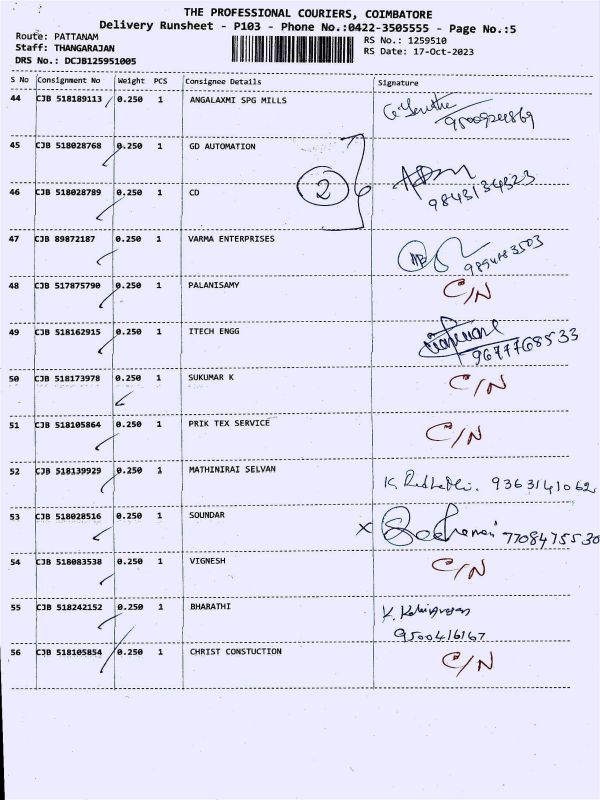 THE PROFESSIONAL COURIERS, COIMBATORE
Delivery Runsheet - P103 - Phone No.:0422-3505555 - Page No.:5
Route: PATTANAM RS No.: 1259510
Staff: THANGARAJAN RS Date: 17-Oct-2023
DRS No.: DCJB125951005
S No Consignment No Weight PCS Consignee Details Signature
44 CJB 518189113 0.250 1 ANGALAXMI SPG MILLS
45 CJB 518028768 0.250 1 GD AUTOMATION
2
46 CJB 518028789 0.250 1 CD
9843134323
47 CJB 89872187 0.250 1 VARMA ENTERPRISES
48 CJB 517875790 0.250 1 PALANISAMY C/N
49 CJB 518162915 0.250 1 ITECH ENGG
9677768533
50 CJB 518173978 0.250 1 SUKUMAR K C/N
51 CJB 518105864 0.250 1 PRIK TEX SERVICE C/N
52 CJB 518139929 0.250 1 MATHINIRAI SELVAN
9363141062
53 CJB 518028516 0.250 1 SOUNDAR
X 7708475530
54 CJB 518083538 0.250 1 VIGNESH C/N
55 CJB 518242152 0.250 1 BHARATHI
9500416167
56 CJB 518105854 0.250 1 CHRIST CONSTUCTION C/N